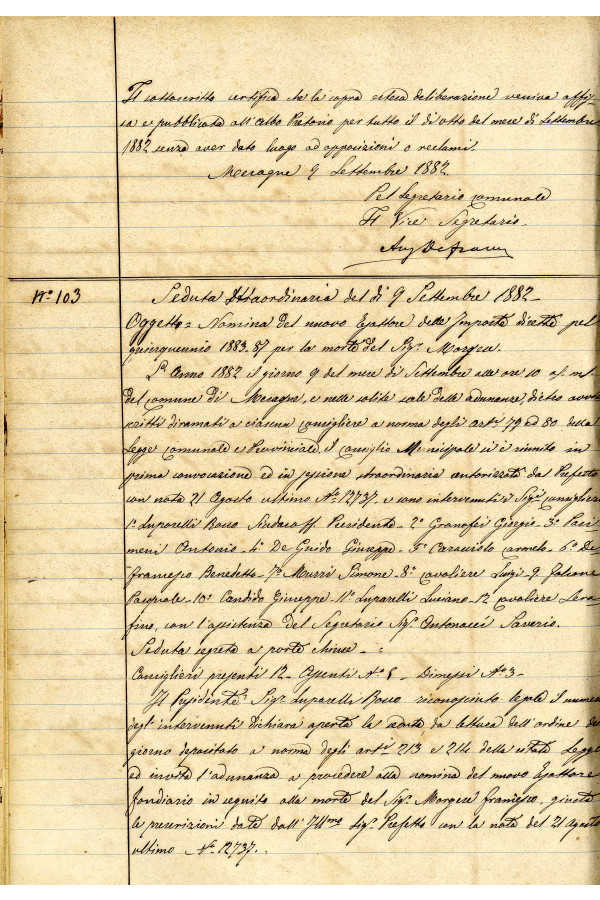 Il sottoscritto certifica che la sopra estesa deliberazione veniva affis-
sa e pubblicata all'Albo Pretorio per tutto il dì otto del mese di Settembre
1882 senza aver dato luogo ad opposizioni o reclami.
Mesagne 9 Settembre 1882.
Pel Segretario Comunale
Il Vice Segretario
Nº 103
Seduta Straordinaria del dì 9 Settembre 1882 _
Oggetto = Nomina del nuovo Esattore delle Imposte dirette pel
quinquennio 1883.87 per la morte del Sigr Morgese.
L'Anno 1882 il giorno 9 del mese di Settembre alle ore 10 a. m.
del comune di Mesagne, e nelle solite sale delle adunanze, dietro avvisi
scritti diramati a ciascun consigliere a norma degli artli 79 ed 80 della
Legge comunale e Provinciale, il consiglio Municipale si è riunito in
prima convocazione ed in sessione straordinaria autorizzata dal Prefetto
con nota 21 Agosto ultimo Nº 12737, e sono intervenuti i Sigri consiglieri
1º Luparelli Rocco Sindaco ff. Presidente - 2º Granafei Giorgio - 3º Paci
meni Antonio - 4º De Guido Giuseppe - 5º Caracciolo Carmelo - 6º De
Francesco Benedetto - 7º Murri Simone - 8º Cavaliere Luigi - 9 Falcone
Pasquale - 10º Candido Giuseppe - 11º Luparelli Luciano - 12 Cavaliere Sera
fino, con l'assistenza del Segretario Sigr Antonacci Saverio.
Seduta segreta a porte chiuse - =
Consiglieri presenti 12 - Assenti Nº 5 - Dimessi Nº 3 -
Il Presidente Sigr Luparelli Rocco riconosciuto legale il numero
degl'intervenuti dichiara aperta la seduta da lettura dell'ordine del
giorno depositato a norma degli artli 213 e 214 della citata Legge
ed invita l'adunanza a procedere alla nomina del nuovo Esattore
fondiario in seguito alla morte del Sigr Morgese Francesco, giusta
le prescrizioni date dall'Illmo Sigr Prefetto con la nota del 21 Agosto
ultimo Nº 12737.